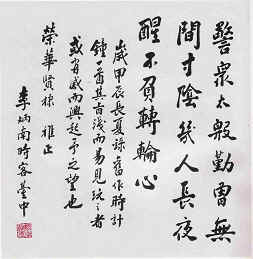 警衆太殷勤曾無
間寸陰幾人長夜
醒不負轉輪心
歲甲辰長夏録舊作時計
鐘一首其旨淺而易見玩之者
或有感而興起予之望也
榮華賢棣 雅正
李炳南時客臺中